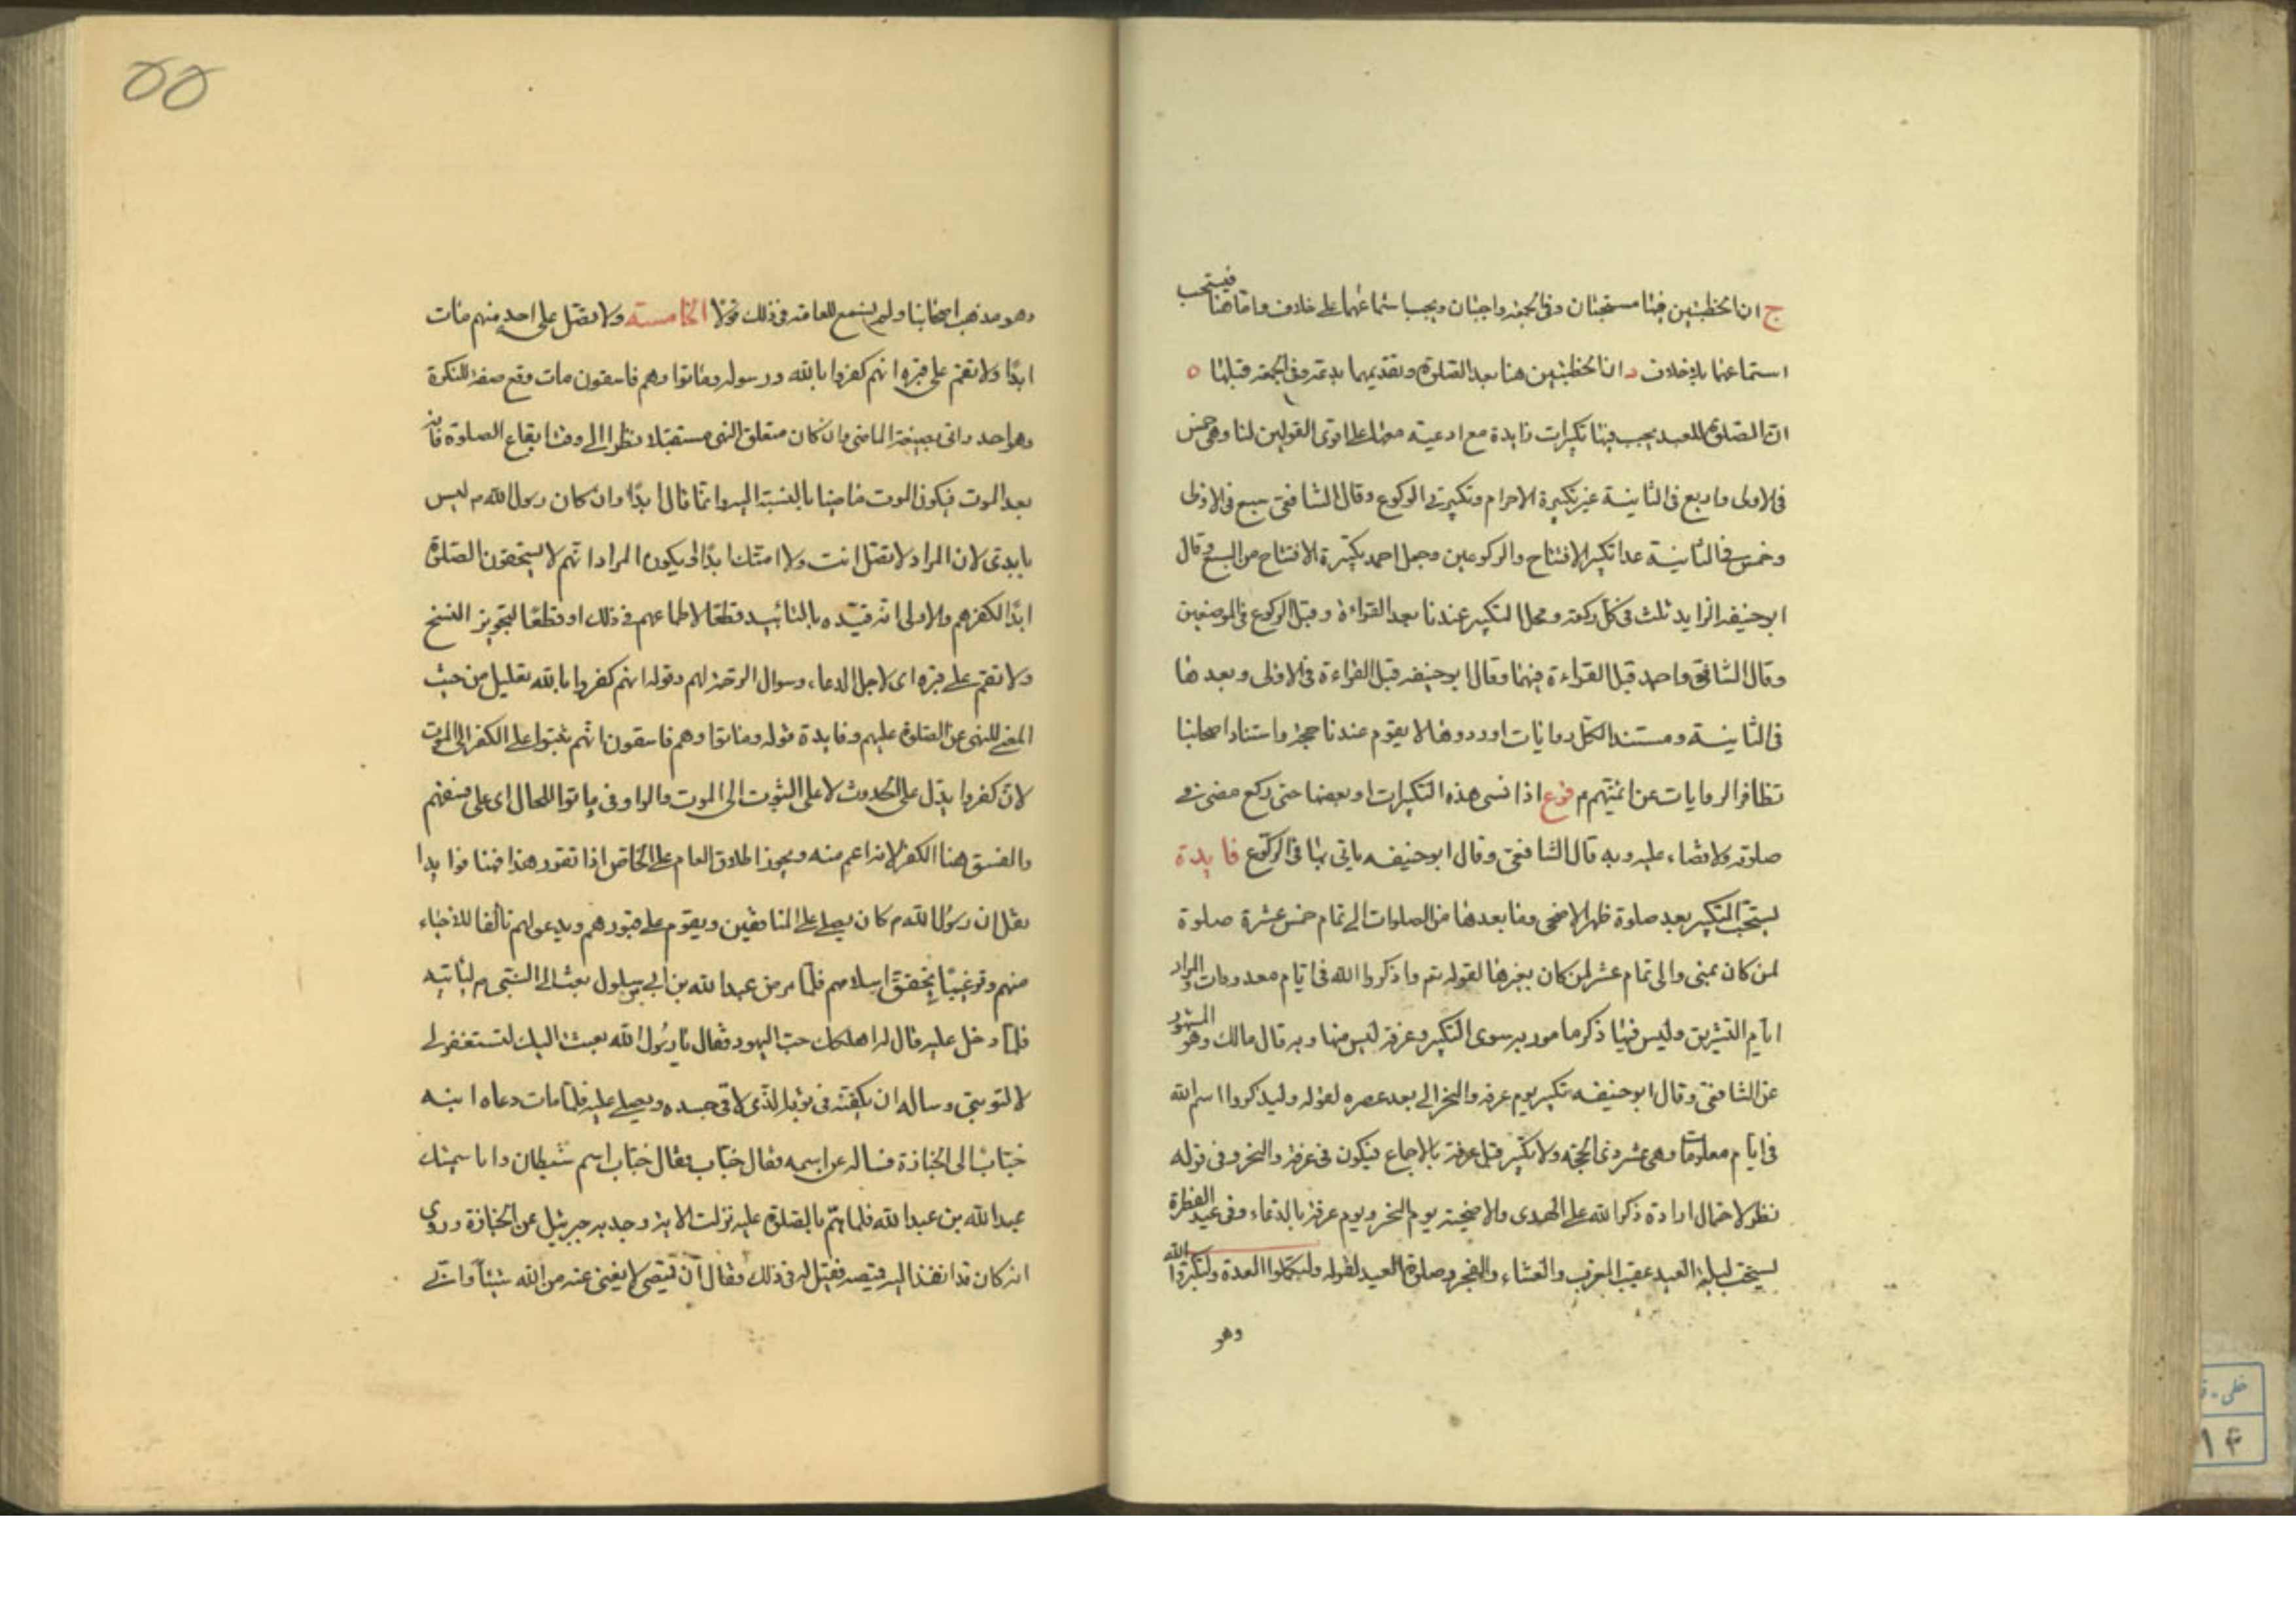 ج ان الخطبتين فيها مستحبتان وفى الجمعة واجبتان ويجب استماعهما على خلاف واما هنا فيستحب
استماعها بلا خلاف د ان الخطبتين هنا بعد الصلوة وتقديمهما بدعة وفى الجمعة قبلها ه
ان الصلوة للعيد يجب فيها تكبيرات زايدة مع ادعية معها على اقوى القولين لنا وهى خمس
فى الاولى واربع فى الثانية غير تكبيرة الاحرام وتكبيرتى الركوع وقال الشافعى سبع فى الاولى
وخمس فى الثانية عدا تكبير الافتتاح والركوعين وجعل احمد تكبيرة الافتتاح من السبع وقال
ابو حنيفه الزايد ثلث فى كل ركعة ومحل التكبير عندنا بعد القراءة وقبل الركوع فى الموضعين
وقال الشافعى واحمد قبل القراءة فيهما وقال ابو حنيفه قبل القراءة فى الاولى وبعدها
فى الثانية ومستند الكل روايات اوردوها لا يقوم عندنا حجة واستناد اصحابنا
تظافر الروايات عن ائمتهم م فرع اذا نسى هذه التكبيرات او بعضها حتى ركع مضى فى
صلوته ولا قضاء عليه وبه قال الشافعى وقال ابو حنيفه ياتى بها فى الركوع فايدة
يستحب التكبير بعد صلوة ظهر الاضحى وما بعدها من الصلوات الى تمام خمس عشرة صلوة
لمن كان بمنى والى تمام عشر لمن كان بغيرها لقوله تع واذكروا الله فى ايام معدودات والمراد
ايام التشريق وليس فيها ذكر مامور به سوى التكبير وعرفة ليس منها وبه قال مالك وهو المشهور
عن الشافعى وقال ابو حنيفه تكبير يوم عرفه والنحر الى بعد عصره لقوله وليذكروا اسم الله
فى ايام معلومات وهى عشر ذى الحجة ولا تكبير قبل عرفة بالاجماع فيكون فى عرفة والنحر وفى قوله
نظر لاحتمال ارادة ذكر الله على الهدى والاضحية يوم النحر ويوم عرفة بالدعاء وفى عيد الفطرة
يستحب ليلة العيد عقيب المغرب والعشاء والفجر وصلوة العيد لقوله ولتكملوا العدة ولتكبروا الله
وهو
٥٥
وهو مذهب اصحابنا ولم يسمع للعامة فى ذلك قولا الخامسة ولا تصل على احد منهم مات
ابدًا ولا تقم على قبره انهم كفروا بالله ورسوله وماتوا وهم فاسقون مات وقع صفة للنكرة
وهو احد واتى بصيغة الماضى وان كان متعلق النهى مستقبلا نظرا الى وقت ايقاع الصلوة فانه
بعد الموت فيكون الموت ماضيا بالنسبة اليه وانما قال ابدًا وان كان رسول الله م ليس
بابدى لان المراد لا تصل انت ولا امتك ابدًا او يكون المراد انهم لا يستحقون الصلوة
ابدًا لكفرهم والاولى انه قيده بالتابيد قطعًا لاطماعهم فى ذلك او قطعًا لتجويز النسخ
ولا تقم على قبره اى لاجل الدعاء وسوال الرحمة لهم وقوله انهم كفروا بالله تعليل من حيث
المعنى للنهى عن الصلوة عليهم وفايدة قوله وماتوا وهم فاسقون انهم ثبتوا على الكفر الى الموت
لان كفروا يدل على الحدوث لا على الثبوت الى الموت والواو فى ماتوا للحال اى على فسقهم
والفسق هنا الكفر لانه اعم منه ويجوز اطلاق العام على الخاص اذا تقرر هذا فهنا فوايد ا
نقل ان رسول الله م كان يصلى على المنافقين ويقوم على قبورهم ويدعو لهم تالفا للاحياء
منهم وترغيبًا بتحقق اسلامهم فلما مرض عبد الله بن ابى سلول بعث الى النبى م لياتيه
فلما دخل عليه قال له اهلكك حب اليهود فقال يا رسول الله بعثت اليك لتستغفر لى
لا لتوبنى وساله ان يكفنه فى ثوبه الذى لاقى جسده ويصلى عليه فلما مات دعاه ابنه
حباب الى الجنازة فساله عن اسمه فقال حباب فقال حباب اسم شيطان وانا سميتك
عبد الله بن عبد الله فلما هم بالصلوة عليه نزلت الاية وجذبه جبرئيل عن الجنازة وروى
انه كان قد انفذ اليه قميصه فقيل له فى ذلك فقال ان قميصى لا يغنى عنه من الله شيئا وانى